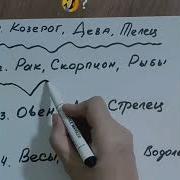 Козерог, Дева, Телец
2. Рак, Скорпион, Рыбы
3. Овен, Стрелец
4. Весы,